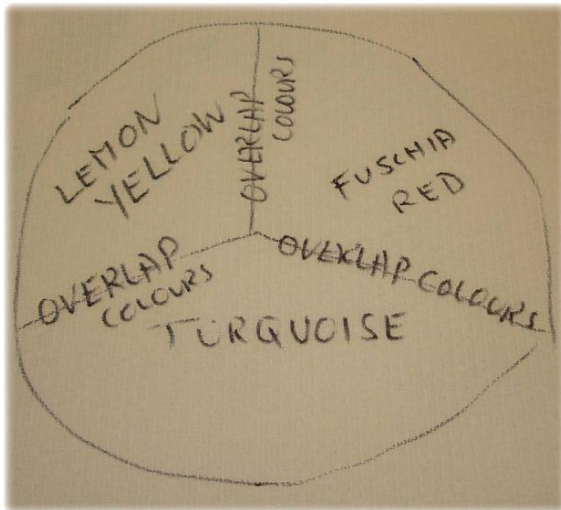 LEMON
YELLOW
OVERLAP
COLOURS
FUSCHIA
RED
OVERLAP
COLOURS
OVERLAP COLOURS
TURQUOISE